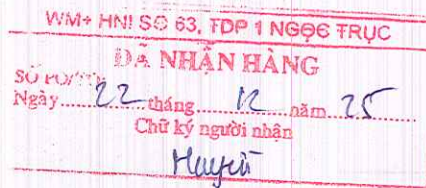 WM+ HNI SỐ 63, TDP 1 NGỌC TRỤC
ĐÃ NHẬN HÀNG
SỐ PO/
Ngày 22 tháng 12 năm 25
Chữ ký người nhận
Huyền